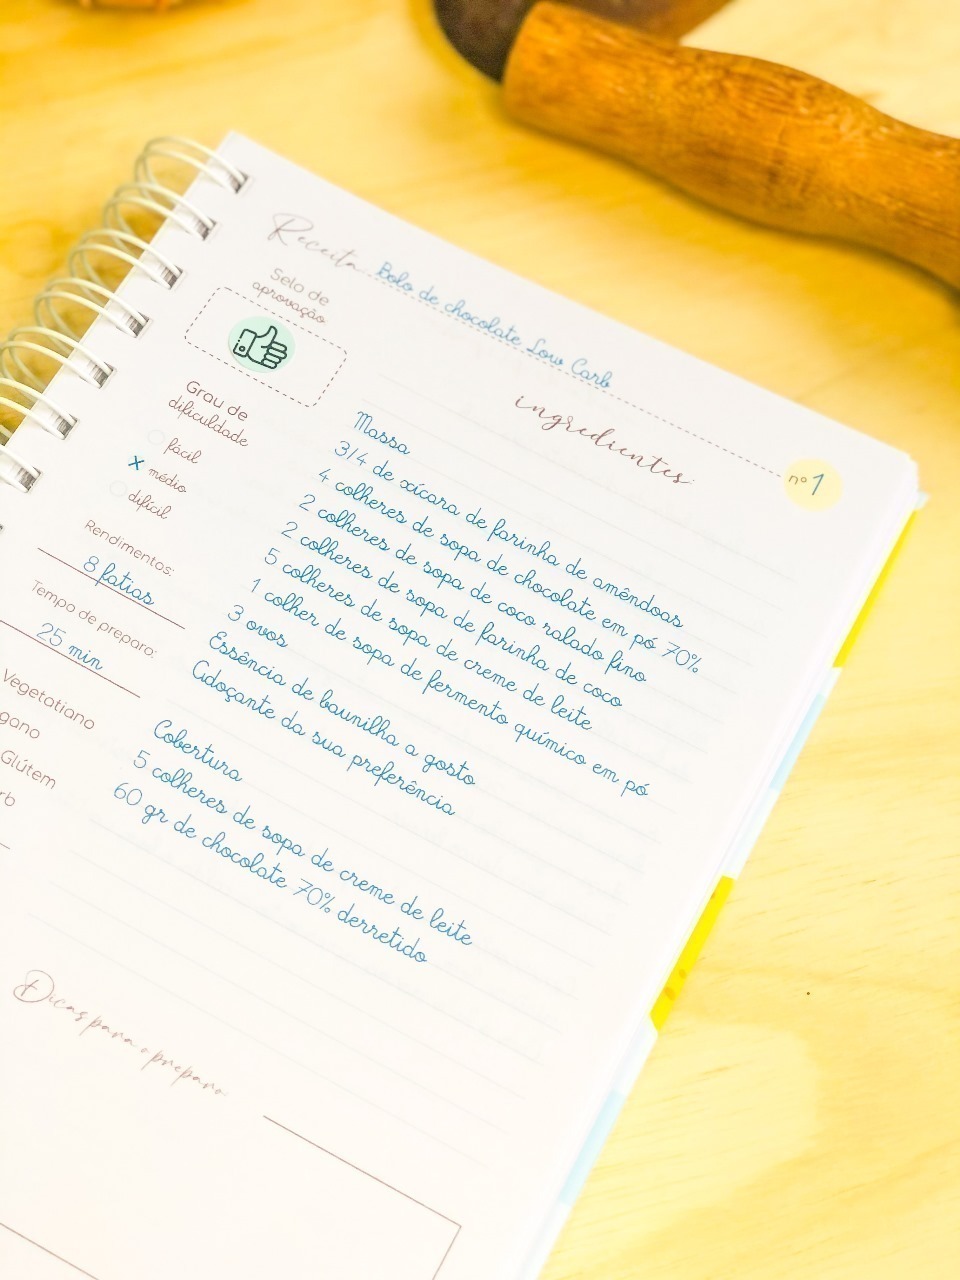 Receita: Bolo de chocolate Low Carb
nº 1
Selo de
aprovação
Grau de
dificuldade
fácil
x médio
difícil
Rendimentos:
8 fatias
Tempo de preparo:
25 min
Vegetatiano
gano
Glútem
rb
ingredientes:
Massa
3/4 de xícara de farinha de amêndoas
4 colheres de sopa de chocolate em pó 70%
2 colheres de sopa de coco ralado fino
2 colheres de sopa de farinha de coco
5 colheres de sopa de creme de leite
1 colher de sopa de fermento químico em pó
3 ovos
Essência de baunilha a gosto
Adoçante da sua preferência
Cobertura
5 colheres de sopa de creme de leite
60 gr de chocolate 70% derretido
Dicas para o preparo